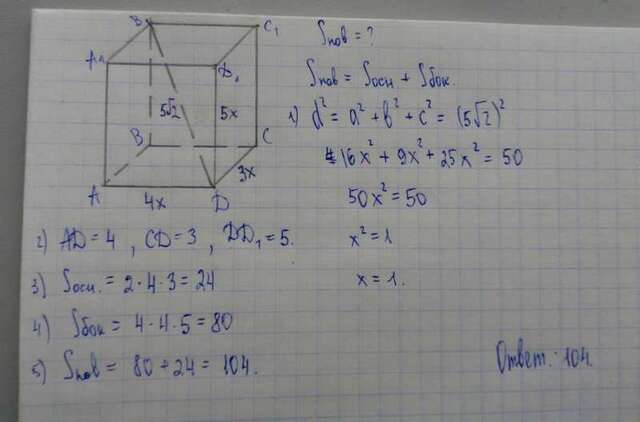 B₁ C₁
A₁ D₁
5√2 5x
B C
3x
A D
4x
Sпов = ?
Sпов = Sосн + Sбок.
1) d² = a² + b² + c² = (5√2)²
16x² + 9x² + 25x² = 50
50x² = 50
x² = 1
x = 1.
2) AD = 4 , CD = 3 , DD₁ = 5.
3) Sосн. = 2 · 4 · 3 = 24
4) Sбок = 4 · 4 · 5 = 80
5) Sпов = 80 + 24 = 104.
Ответ: 104.